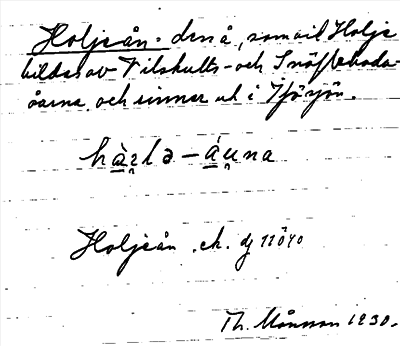 Holjeån. den å, som vid Holje
bildas av Vilshults- och Snöflebodaåarna
och rinner ut i Ifösjön.
hàrlə – áuna
Holjeån, ek. dj 11040
Th. Månsson 1930.